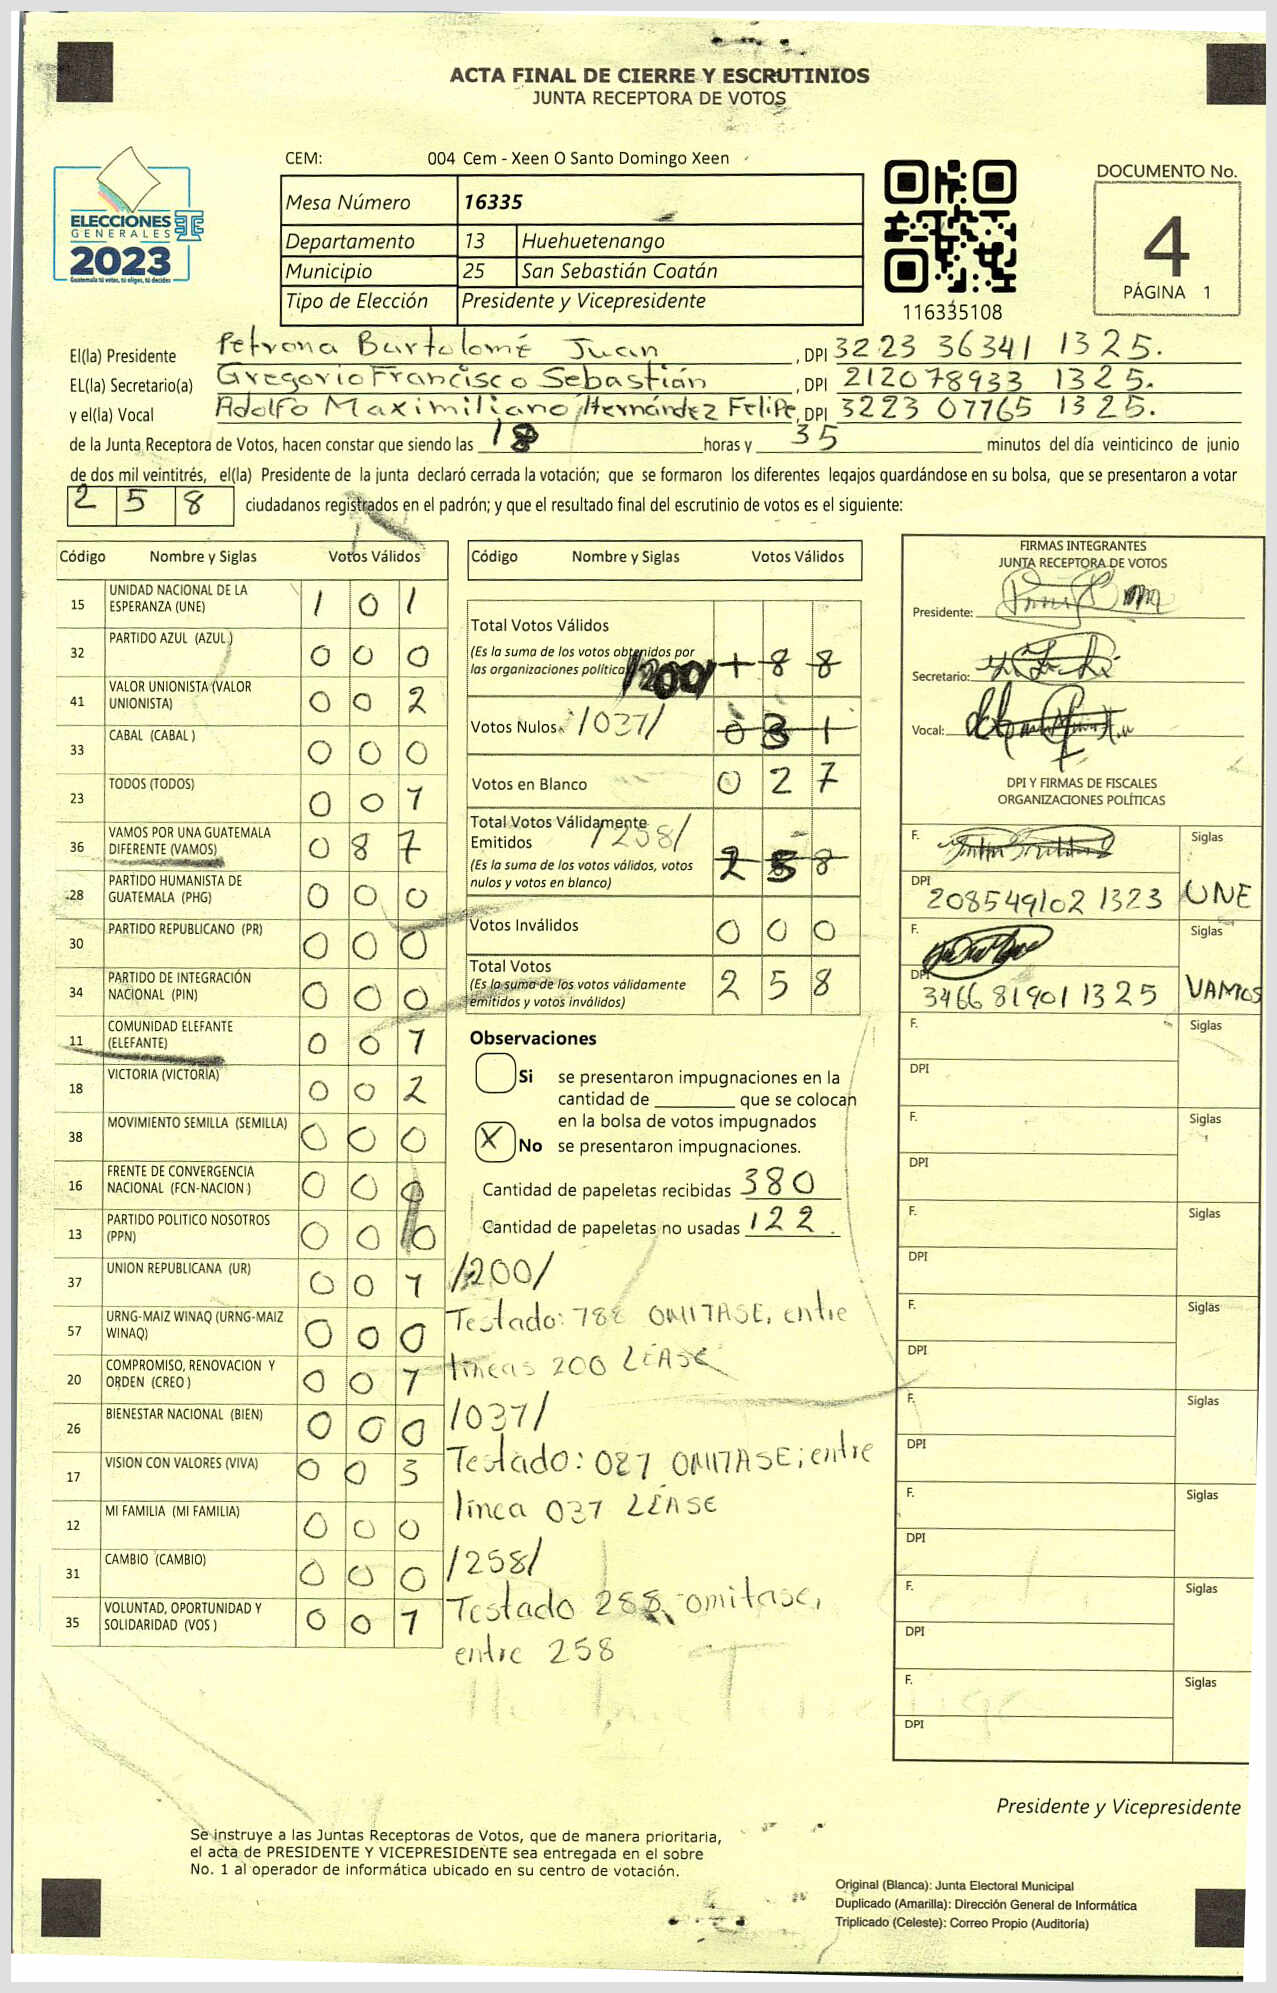 ACTA FINAL DE CIERRE Y ESCRUTINIOS
JUNTA RECEPTORA DE VOTOS
ELECCIONES
GENERALES
2023
Guatemala tú votas, tú eliges, tú decides
CEM: 004 Cem - Xeen O Santo Domingo Xeen
Mesa Número 16335
Departamento 13 Huehuetenango
Municipio 25 San Sebastián Coatán
Tipo de Elección Presidente y Vicepresidente
116335108
DOCUMENTO No.
4
PÁGINA 1
El(la) Presidente Petrona Bartolomé Juan, DPI 3223 36341 1325.
EL(la) Secretario(a) Gregorio Francisco Sebastián, DPI 212078933 1325.
y el(la) Vocal Adolfo Maximiliano Hernández Felipe, DPI 3223 07765 1325.
de la Junta Receptora de Votos, hacen constar que siendo las 18 horas y 35 minutos del día veinticinco de junio
de dos mil veintitrés, el(la) Presidente de la junta declaró cerrada la votación; que se formaron los diferentes legajos quardándose en su bolsa, que se presentaron a votar
2 5 8 ciudadanos registrados en el padrón; y que el resultado final del escrutinio de votos es el siguiente:
Código Nombre y Siglas Votos Válidos
15 UNIDAD NACIONAL DE LA ESPERANZA (UNE) 1 0 1
32 PARTIDO AZUL (AZUL) 0 0 0
41 VALOR UNIONISTA (VALOR UNIONISTA) 0 0 2
33 CABAL (CABAL) 0 0 0
23 TODOS (TODOS) 0 0 1
36 VAMOS POR UNA GUATEMALA DIFERENTE (VAMOS) 0 8 7
28 PARTIDO HUMANISTA DE GUATEMALA (PHG) 0 0 0
30 PARTIDO REPUBLICANO (PR) 0 0 0
34 PARTIDO DE INTEGRACIÓN NACIONAL (PIN) 0 0 0
11 COMUNIDAD ELEFANTE (ELEFANTE) 0 0 1
18 VICTORIA (VICTORIA) 0 0 2
38 MOVIMIENTO SEMILLA (SEMILLA) 0 0 0
16 FRENTE DE CONVERGENCIA NACIONAL (FCN-NACION) 0 0 0
13 PARTIDO POLITICO NOSOTROS (PPN) 0 0 0
37 UNION REPUBLICANA (UR) 0 0 1
57 URNG-MAIZ WINAQ (URNG-MAIZ WINAQ) 0 0 0
20 COMPROMISO, RENOVACION Y ORDEN (CREO) 0 0 1
26 BIENESTAR NACIONAL (BIEN) 0 0 0
17 VISION CON VALORES (VIVA) 0 0 3
12 MI FAMILIA (MI FAMILIA) 0 0 0
31 CAMBIO (CAMBIO) 0 0 0
35 VOLUNTAD, OPORTUNIDAD Y SOLIDARIDAD (VOS) 0 0 1
Código Nombre y Siglas Votos Válidos
Total Votos Válidos
(Es la suma de los votos obtenidos por
las organizaciones política /200/ 1 8 8
Votos Nulos /037/ 0 3 1
Votos en Blanco 0 2 7
Total Votos Válidamente
Emitidos /258/
(Es la suma de los votos válidos, votos
nulos y votos en blanco) 2 5 8
Votos Inválidos 0 0 0
Total Votos
(Es la suma de los votos válidamente
emitidos y votos inválidos) 2 5 8
Observaciones
Si se presentaron impugnaciones en la
cantidad de ________ que se colocan
en la bolsa de votos impugnados
X No se presentaron impugnaciones.
Cantidad de papeletas recibidas 380
Cantidad de papeletas no usadas 122.
/200/
Testado: 788 OMITASE, entre
líneas 200 LÉASE
/037/
Testado: 027 OMITASE; entre
línea 037 LÉASE
/258/
Testado 288 omitase,
entre 258
FIRMAS INTEGRANTES
JUNTA RECEPTORA DE VOTOS
Presidente:
Secretario:
Vocal:
DPI Y FIRMAS DE FISCALES
ORGANIZACIONES POLÍTICAS
F. Siglas
DPI 208549102 1323 UNE
F. Siglas
DPI 3466 81901 1325 VAMOS
F. Siglas
DPI
F. Siglas
DPI
F. Siglas
DPI
F. Siglas
DPI
F. Siglas
DPI
F. Siglas
DPI
F. Siglas
DPI
F. Siglas
DPI
Presidente y Vicepresidente
Se instruye a las Juntas Receptoras de Votos, que de manera prioritaria,
el acta de PRESIDENTE Y VICEPRESIDENTE sea entregada en el sobre
No. 1 al operador de informática ubicado en su centro de votación.
Original (Blanca): Junta Electoral Municipal
Duplicado (Amarilla): Dirección General de Informática
Triplicado (Celeste): Correo Propio (Auditoría)